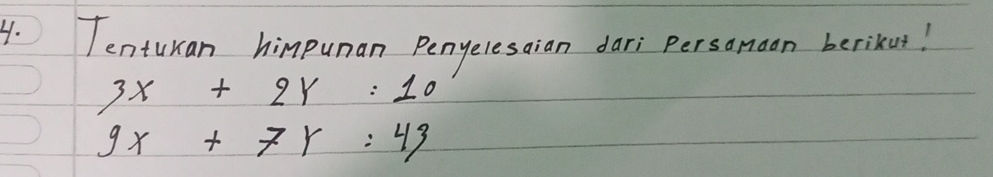 4. Tentukan himpunan Penyelesaian dari Persamaan berikut!
3X + 2Y : 10
9X + 7Y : 43